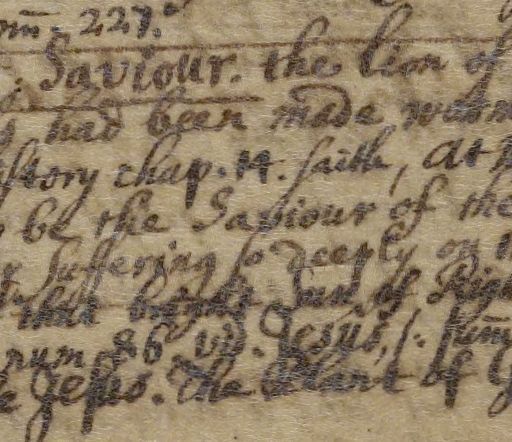 om̄. 227.
Saviour. the lion of
had been made warm
story chap. 14. saith, At
be the Saviour of the
suffering so deeply on
that bright Sun of Righ
num. 86. vid. Jesus,
Jesus. the plant of